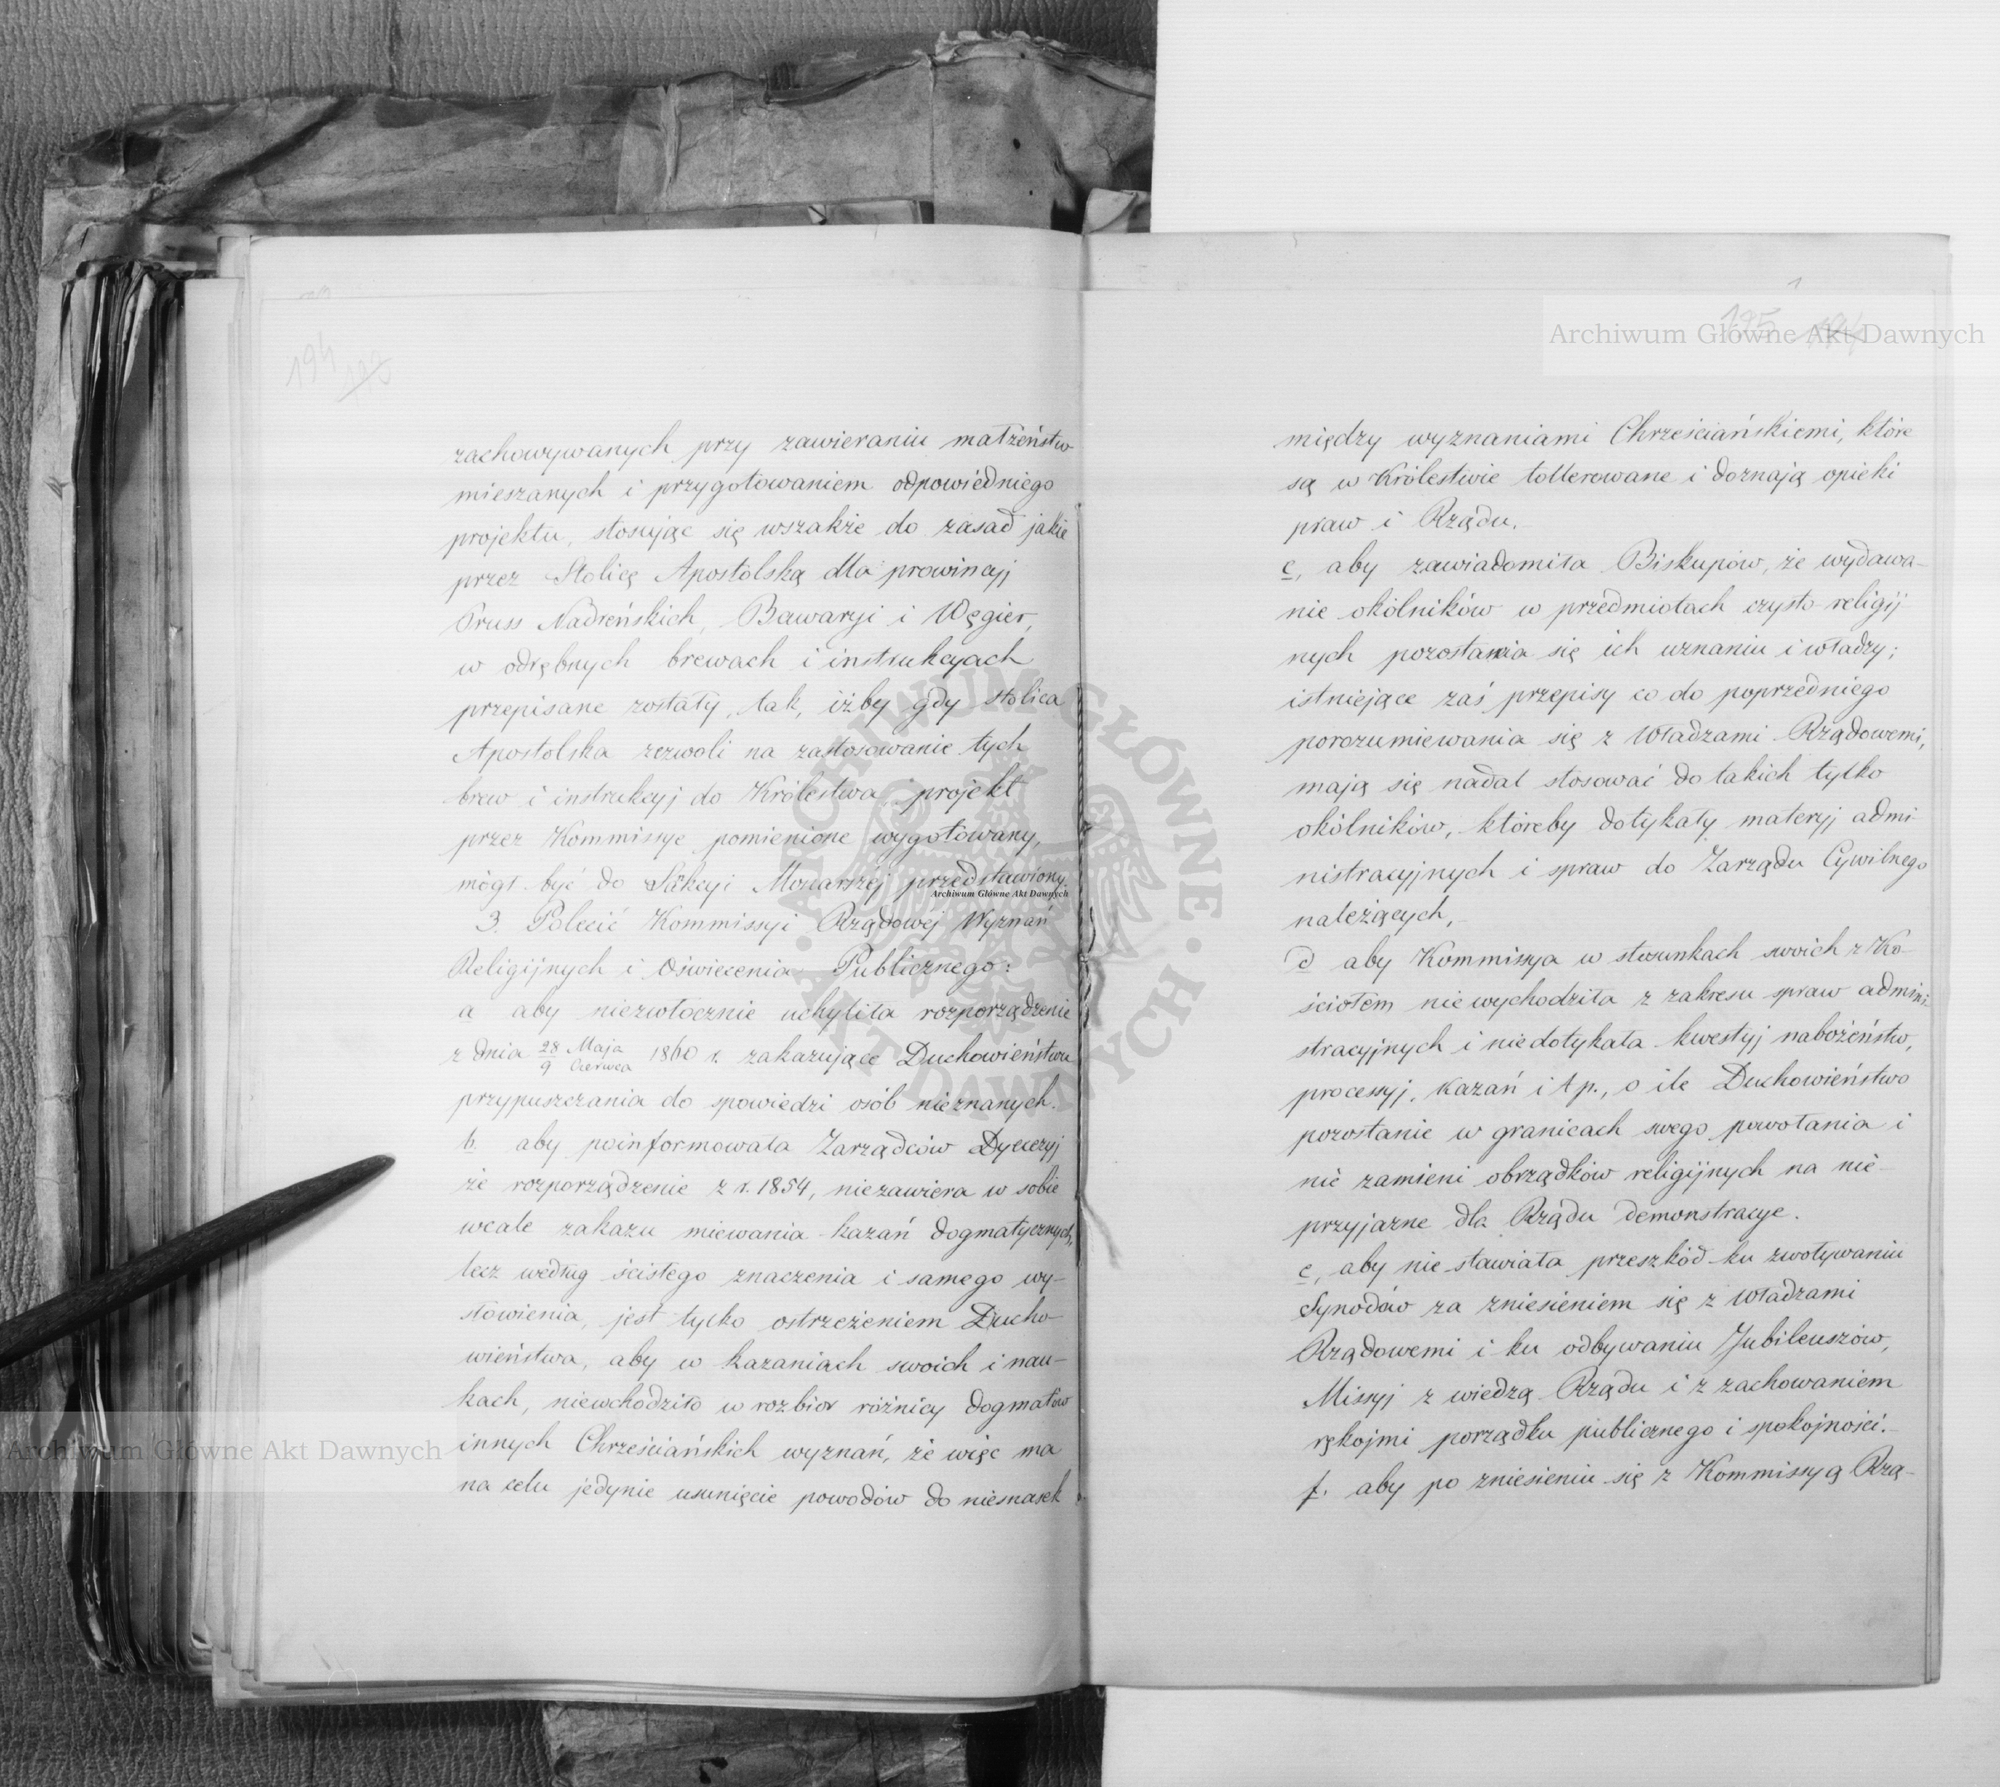 194
zachowywanych przy zawieraniu małżeństw
mieszanych i przygotowaniem odpowiedniego
projektu, stosując się wszakże do zasad jakie
przez Stolicę Apostolską dla prowincyj
Pruss Nadreńskich, Bawaryi i Węgier,
w odrębnych brewach i instrukcyach
przepisane zostały, tak, iżby gdy stolica
Apostolska zezwoli na zastosowanie tych
brew i instrukcyj do Królestwa, projekt
przez Kommissye pomienione wygotowany,
mógł być do Sankcyi Monarszéj przedstawiony.
3. Polecić Kommissyi Rządowéj Wyznań
Religijnych i Oświecenia Publicznego:
a aby niezwłocznie uchyliła rozporządzenie
z dnia 28 Maja / 9 Czerwca 1860 r. zakazujące Duchowieństwu
przypuszczania do spowiedzi osób nieznanych.
b. aby poinformowała Zarządców Dyecezyj
że rozporządzenie z r. 1854, niezawiera w sobie
wcale zakazu miewania kazań dogmatycznych,
lecz według ścisłego znaczenia i samego wy-
słowienia, jest tylko ostrzeżeniem Ducho-
wieństwa, aby w kazaniach swoich i nau-
kach, niewchodziło w rozbior różnicy dogmatów
innych Chrześciańskich wyznań, że więc ma
na celu jedynie usunięcie powodów do niesnasek
195 194
między wyznaniami Chrześciańskiemi, które
są w Królestwie tollerowane i doznają opieki
praw i Rządu.
c, aby zawiadomiła Biskupów, że wydawa-
nie okólników w przedmiotach czysto religij-
nych pozostawia się ich uznaniu i władzy;
istniejące zaś przepisy co do poprzedniego
porozumiewania się z Władzami Rządowemi,
mają się nadal stosować do takich tylko
okólników, któreby dotykały materyj admi-
nistracyjnych i spraw do Zarządu Cywilnego
należących,
d aby Kommissya w stosunkach swoich z Ko-
ściołem niewychodziła z zakresu spraw admini-
stracyjnych i niedotykała kwestyj nabożeństw,
processyj, kazań i t p., o ile Duchowieństwo
pozostanie w granicach swego powołania i
nie zamieni obrządków religijnych na nie-
przyjazne dla Rządu demonstracye.
e, aby nie stawiała przeszkód ku zwoływaniu
Synodów za zniesieniem się z Władzami
Rządowemi i ku odbywaniu Jubileuszów,
Missyj z wiedzą Rządu i z zachowaniem
rękojmi porządku publicznego i spokojności.-
f. aby po zniesieniu się z Kommissyą Rzą-
Archiwum Główne Akt Dawnych
Archiwum Główne Akt Dawnych
Archiwum Główne Akt Dawnych
ARCHIWUM GŁÓWNE AKT DAWNYCH